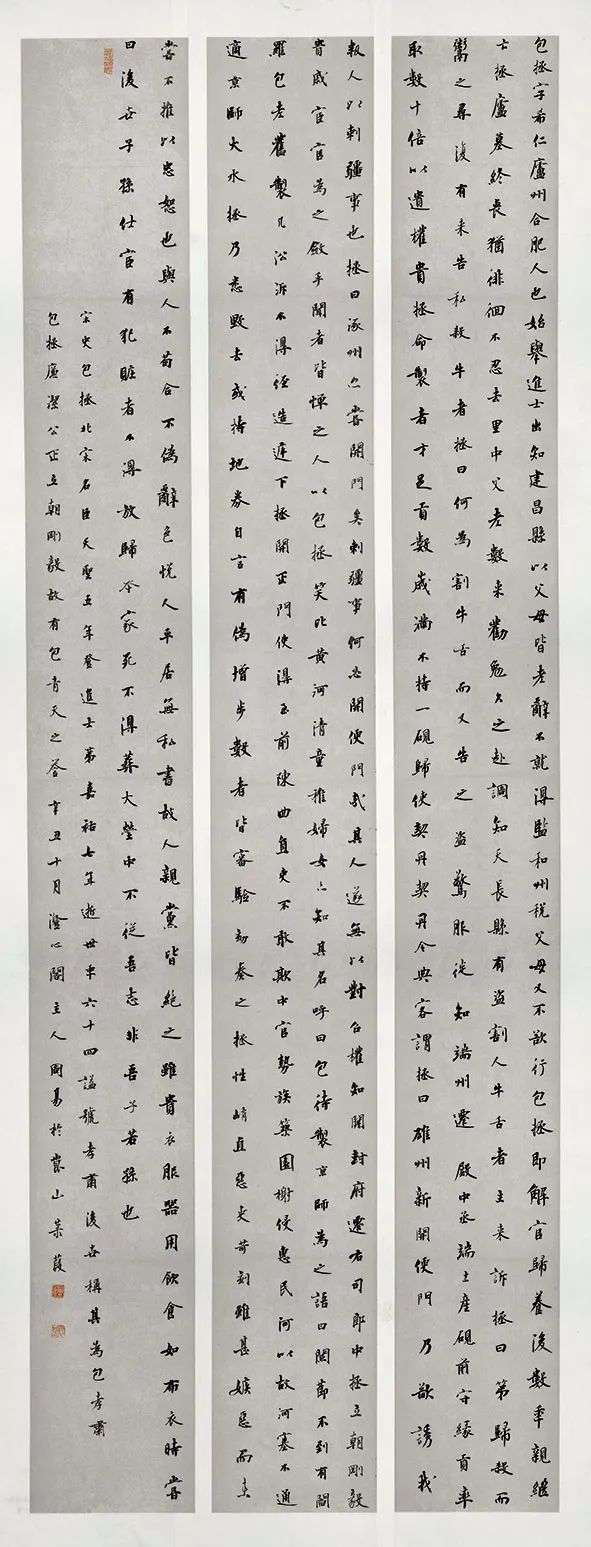 包拯字希仁廬州合肥人也始舉進士出知建昌縣以父母皆老辭不就得監和州稅父母又不欲行包拯即解官歸養後數年親繼
亡拯廬墓終喪猶徘徊不忍去里中父老數來勸勉久之赴調知天長縣有盜割人牛舌者主來訴拯曰第歸殺而
鬻之尋復有來告私殺牛者拯曰何為割牛舌而又告之盜驚服徙知端州遷殿中丞端土產硯前守緣貢率
取數十倍以遺權貴拯命製者才足貢數歲滿不持一硯歸使契丹契丹令典客謂拯曰雄州新開便門乃欲誘我
叛人以刺疆事也拯曰涿州亦嘗開門矣刺疆事何必開便門哉其人遂無以對召權知開封府遷右司郎中拯立朝剛毅
貴戚宦官為之斂手聞者皆憚之人以包拯笑比黃河清童稚婦女亦知其名呼曰包待製京師為之語曰關節不到有閻
羅包老舊製凡訟訴不得徑造庭下拯開正門使得至前陳曲直吏不敢欺中官勢族築園榭侵惠民河以故河塞不通
適京師大水拯乃悉毀去或持地券自言有偽增步數者皆審驗劾奏之拯性峭直惡吏苛刻雖甚嫉惡而未
嘗不推以忠恕也與人不苟合不偽辭色悅人平居無私書故人親黨皆絕之雖貴衣服器用飲食如布衣時嘗
曰後世子孫仕宦有犯贓者不得放歸本家死不得葬大塋中不從吾志非吾子若孫也
宋史包拯北宋名臣天聖五年登進士第嘉祐七年逝世年六十四謚號孝肅後世稱其為包孝肅
包拯廉潔公正立朝剛毅故有包青天之答辛丑十月澄心閣主人周易於嵩山